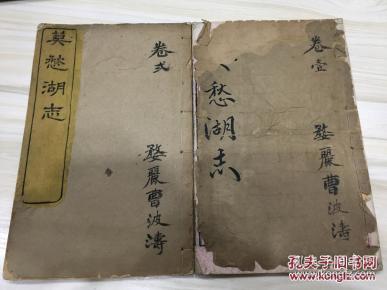 莫愁湖志
卷弍
婺嚴曹波濤
卷壹
愁湖志
婺嚴曹波濤
孔夫子旧书网